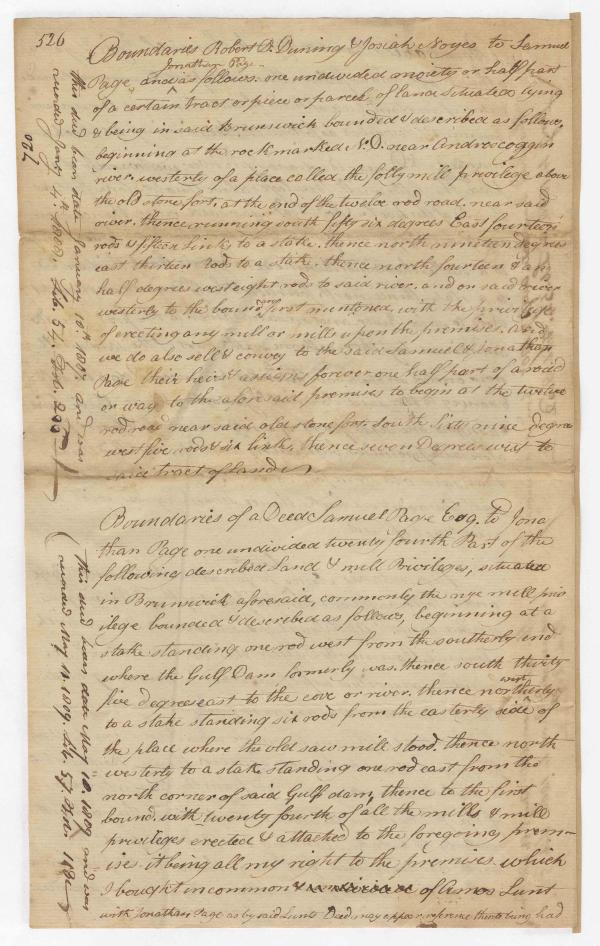 526
Boundaries Robert D. Duning & Josiah Noyes to Samuel
Jonathan Page
Page and as follows. one undivided moiety or half part
of a certain tract or piece or parcel of land situated lying
& being in said Brunswick bounded & described as follows,
beginning at the rock marked N.D. near Androscoggin
river, westerly of a place called the folly mill privilege above
the old stone fort, at the end of the twelve rod road, near said
river, thence running south fifty six degrees East fourteen
rods & fifteen links to a stake, thence north nineteen degrees
east thirteen rod to a stake, thence north fourteen & an
half degrees west eight rod to said river, and on said river
westerly to the bound first mentoned, with the privilege
of erecting any mill or mills upon the premises. and
we do also sell & convey to the said Samuel & Jonathan
Page their heirs & assigns forever one half part of a road
or way to the aforesaid premises to begin at the twelve
rod road near said old stone fort, south sixty nine degree
west five rods & six links, thence seven Degrees west to
said tract of land
This deed bears date January 10th 1807 and was
recorded Jany 4th 1808. Lib. 54. Fol.
Boundaries of a Deed Samuel Page Esq. to Jona
than Page one undivided twenty fourth Part of the
following described Land & mill Privileges, situated
in Brunswick aforesaid, commonly the nye mill priv
ilege bounded & described as follows, beginning at a
stake standing one rod west from the southerly end
where the Gulf Dam formerly was. thence south thirty
five degrees east to the cove or river. thence northerly
west
to a stake standing six rods from the easterly side of
the place where the old saw mill stood, thence north
westerly to a stake standing one rod east from the
north corner of said Gulf dam, thence to the first
bound, with twenty fourth of all the mills & mill
privileges erected & attached to the foregoing prem=
ise it being all my right to the premises which
I bought in common of Amos Lunt
with Jonathan Page as by said Lunts Deed may appear reference thereto being had
This deed bears date May 10. 1809 and was
recorded May 11. 1809. Lib. 57. Fol.